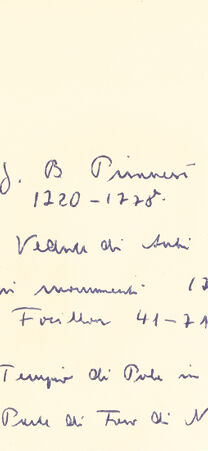 J. B Piranesi
1720-1778.
Vedute di Anti
ni monumenti. 17
Focillon 41-71
Tempio di Pola in
Parte di Foro di N